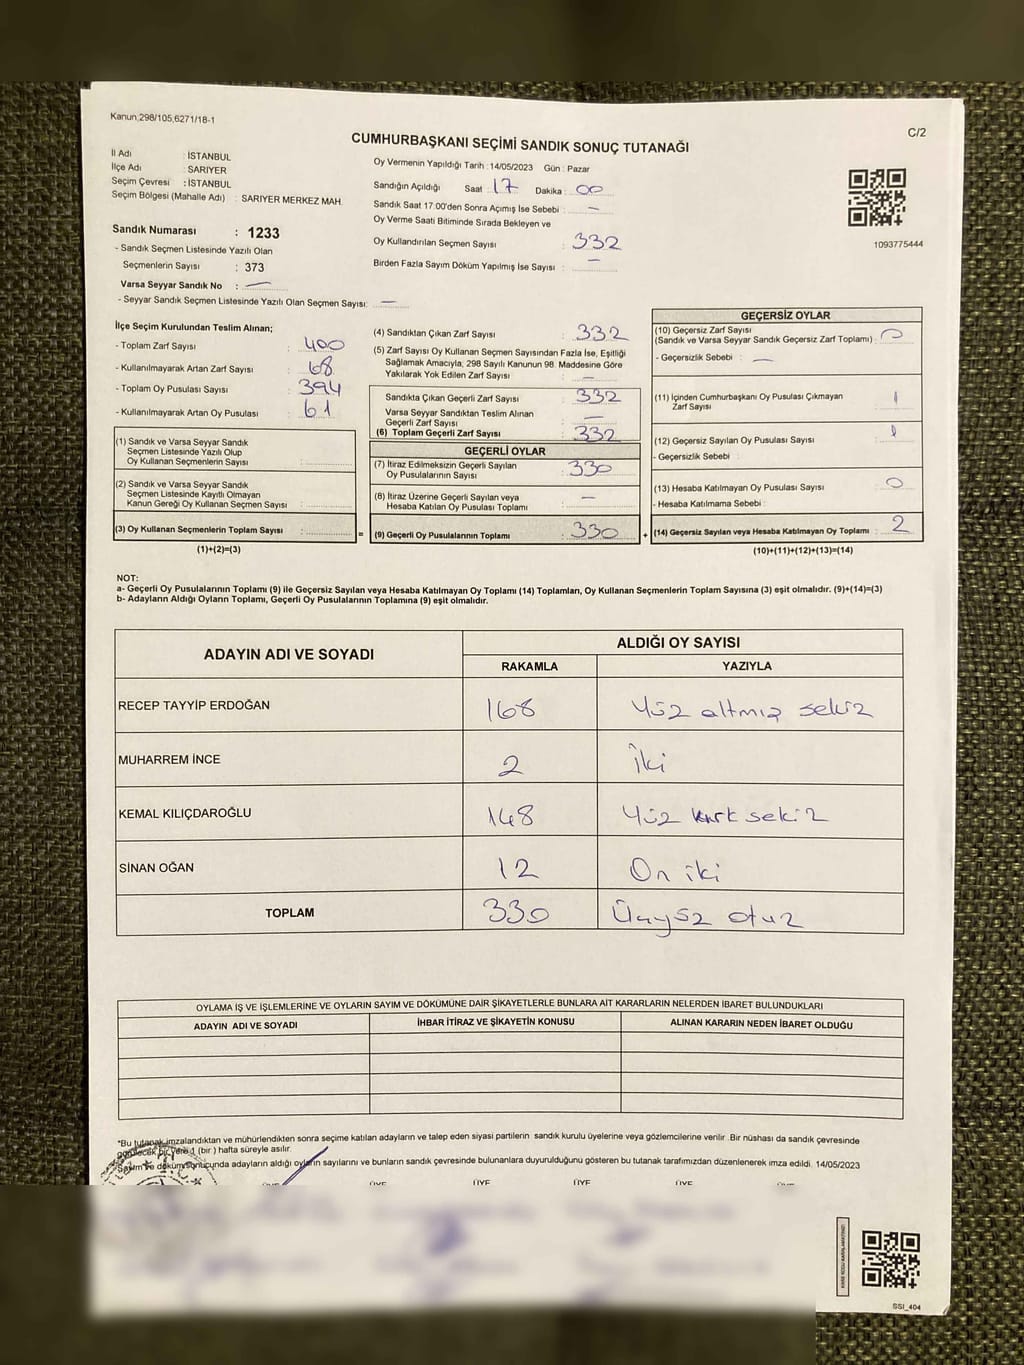 Kanun,298/105,6271/18-1
C/2
CUMHURBAŞKANI SEÇİMİ SANDIK SONUÇ TUTANAĞI
İl Adı : İSTANBUL
İlçe Adı : SARIYER
Seçim Çevresi : İSTANBUL
Seçim Bölgesi (Mahalle Adı) : SARIYER MERKEZ MAH.
Sandık Numarası : 1233
- Sandık Seçmen Listesinde Yazılı Olan
Seçmenlerin Sayısı : 373
Varsa Seyyar Sandık No : —
- Seyyar Sandık Seçmen Listesinde Yazılı Olan Seçmen Sayısı: —
Oy Vermenin Yapıldığı Tarih : 14/05/2023 Gün : Pazar
Sandığın Açıldığı Saat : 17 Dakika : 00
Sandık Saat 17.00'den Sonra Açımış İse Sebebi : —
Oy Verme Saati Bitiminde Sırada Bekleyen ve
Oy Kullandırılan Seçmen Sayısı : 332
Birden Fazla Sayım Döküm Yapılmış İse Sayısı : —
1093775444
İlçe Seçim Kurulundan Teslim Alınan;
- Toplam Zarf Sayısı : 400
- Kullanılmayarak Artan Zarf Sayısı : 68
- Toplam Oy Pusulası Sayısı : 394
- Kullanılmayarak Artan Oy Pusulası : 61
(1) Sandık ve Varsa Seyyar Sandık
Seçmen Listesinde Yazılı Olup
Oy Kullanan Seçmenlerin Sayısı :
(2) Sandık ve Varsa Seyyar Sandık
Seçmen Listesinde Kayıtlı Olmayan
Kanun Gereği Oy Kullanan Seçmen Sayısı :
(3) Oy Kullanan Seçmenlerin Toplam Sayısı :
(1)+(2)=(3)
(4) Sandıktan Çıkan Zarf Sayısı : 332
(5) Zarf Sayısı Oy Kullanan Seçmen Sayısından Fazla İse, Eşitliği
Sağlamak Amacıyla, 298 Sayılı Kanunun 98. Maddesine Göre
Yakılarak Yok Edilen Zarf Sayısı : —
Sandıkta Çıkan Geçerli Zarf Sayısı : 332
Varsa Seyyar Sandıktan Teslim Alınan
Geçerli Zarf Sayısı : —
(6) Toplam Geçerli Zarf Sayısı : 332
GEÇERLİ OYLAR
(7) İtiraz Edilmeksizin Geçerli Sayılan
Oy Pusulalarının Sayısı : 330
(8) İtiraz Üzerine Geçerli Sayılan veya
Hesaba Katılan Oy Pusulası Toplamı : —
= (9) Geçerli Oy Pusulalarının Toplamı : 330
GEÇERSİZ OYLAR
(10) Geçersiz Zarf Sayısı
(Sandık ve Varsa Seyyar Sandık Geçersiz Zarf Toplamı) : 0
- Geçersizlik Sebebi : —
(11) İçinden Cumhurbaşkanı Oy Pusulası Çıkmayan
Zarf Sayısı : 1
(12) Geçersiz Sayılan Oy Pusulası Sayısı : 1
- Geçersizlik Sebebi :
(13) Hesaba Katılmayan Oy Pusulası Sayısı : 0
- Hesaba Katılmama Sebebi :
+ (14) Geçersiz Sayılan veya Hesaba Katılmayan Oy Toplamı : 2
(10)+(11)+(12)+(13)=(14)
NOT:
a- Geçerli Oy Pusulalarının Toplamı (9) ile Geçersiz Sayılan veya Hesaba Katılmayan Oy Toplamı (14) Toplamları, Oy Kullanan Seçmenlerin Toplam Sayısına (3) eşit olmalıdır. (9)+(14)=(3)
b- Adayların Aldığı Oyların Toplamı, Geçerli Oy Pusulalarının Toplamına (9) eşit olmalıdır.
ADAYIN ADI VE SOYADI
ALDIĞI OY SAYISI
RAKAMLA YAZIYLA
RECEP TAYYİP ERDOĞAN 168 Yüz altmış sekiz
MUHARREM İNCE 2 İki
KEMAL KILIÇDAROĞLU 148 Yüz kırk sekiz
SİNAN OĞAN 12 On iki
TOPLAM 330 Üçyüz otuz
OYLAMA İŞ VE İŞLEMLERİNE VE OYLARIN SAYIM VE DÖKÜMÜNE DAİR ŞİKAYETLERLE BUNLARA AİT KARARLARIN NELERDEN İBARET BULUNDUKLARI
ADAYIN ADI VE SOYADI İHBAR İTİRAZ VE ŞİKAYETİN KONUSU ALINAN KARARIN NEDEN İBARET OLDUĞU
*Bu tutanak imzalandıktan ve mühürlendikten sonra seçime katılan adayların ve talep eden siyasi partilerin sandık kurulu üyelerine veya gözlemcilerine verilir .Bir nüshası da sandık çevresinde
görülecek bir yere 1 (bir ) hafta süreyle asılır.
Sayım ve dökümsonucunda adayların aldığı oyların sayılarını ve bunların sandık çevresinde bulunanlara duyurulduğunu gösteren bu tutanak tarafımızdan düzenlenerek imza edildi. 14/05/2023
ÜYE ÜYE ÜYE ÜYE
SSI_404